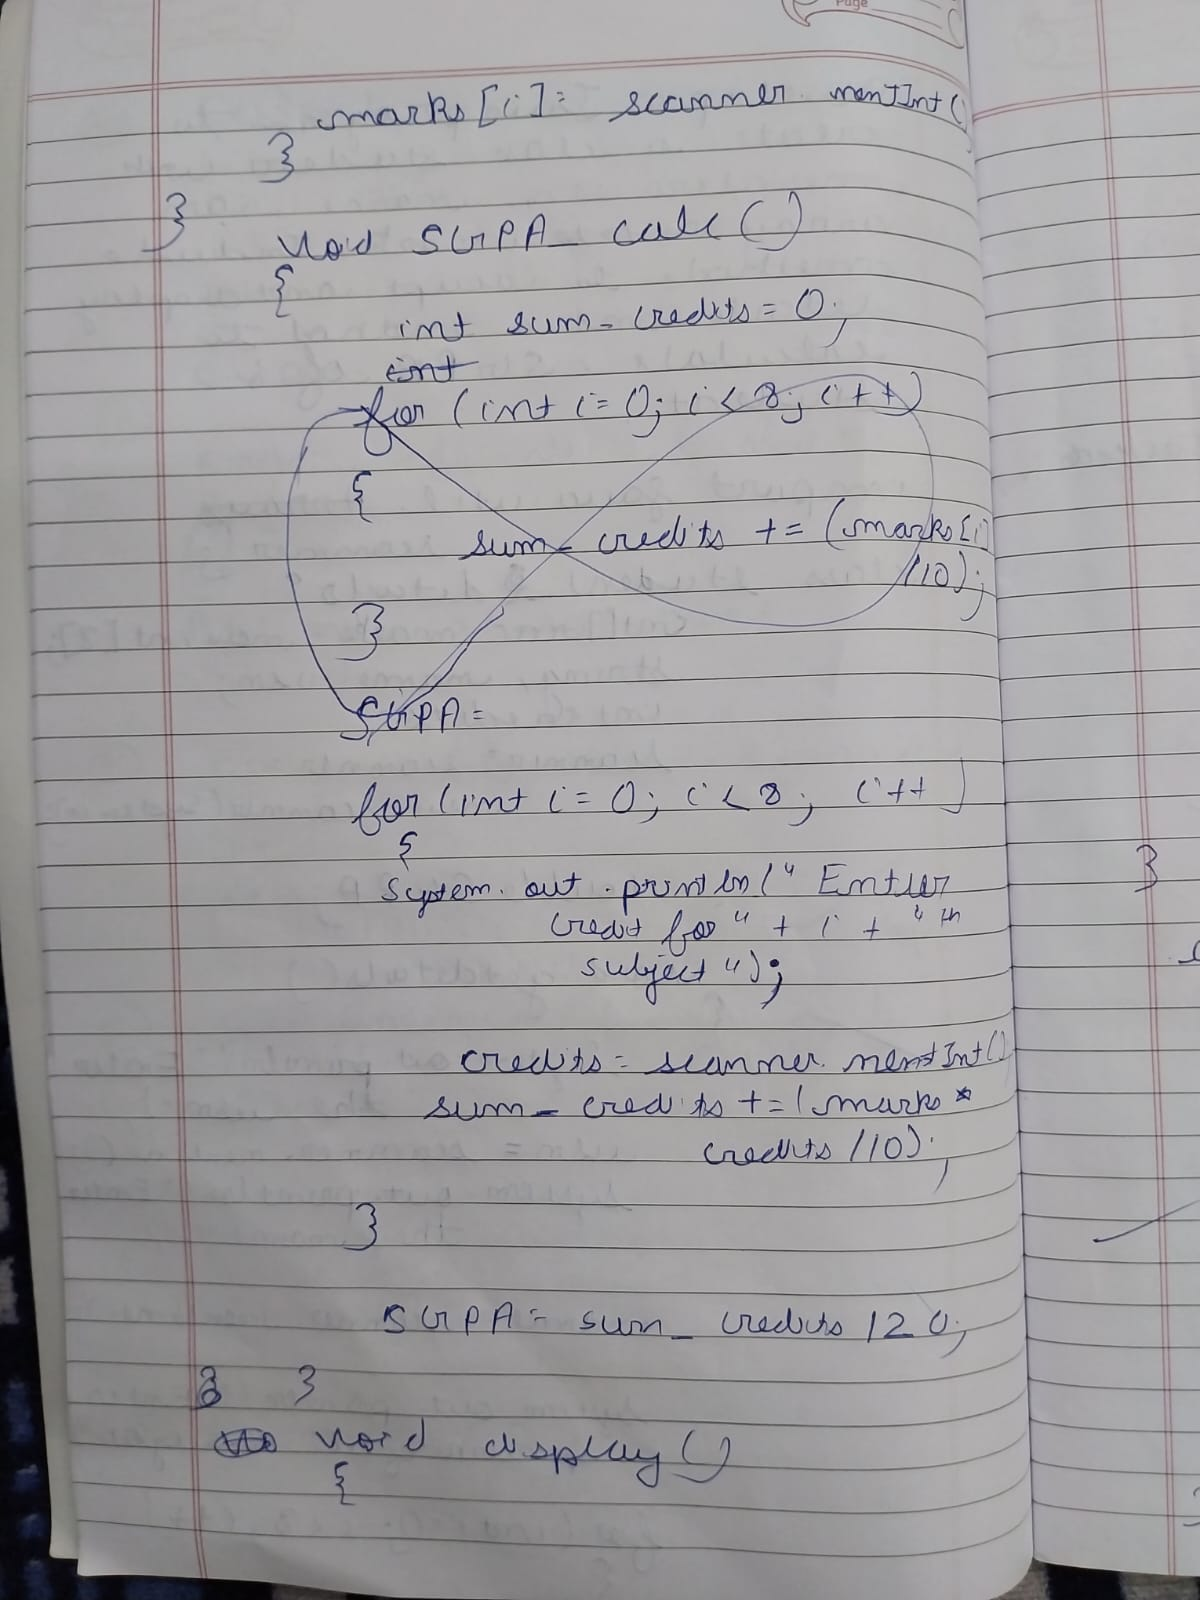 Page
marks[i]= scanner. nextInt(
}
}
void SGPA_ calc()
{
int sum_credits= 0;
int
for (int i=0; i<8; i++)
{
sum_ credits += (marks[i]
/10);
}
SGPA=
for(int i=0; i<8; i++)
{
System. out . println(" Enter
credit for " + i + " th
subject ");
credits= scanner. nextInt()
sum_ credits +=(marks *
credits /10);
}
SGPA= sum_ credits /20;
} }
void display()
{
}